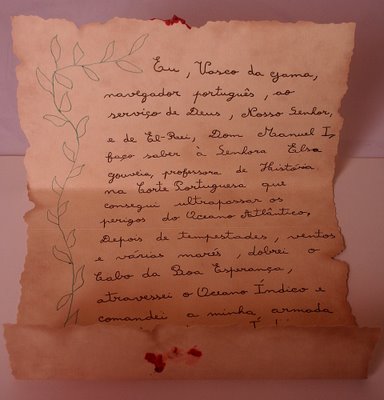 Eu, Vasco da Gama,
navegador português, ao
serviço de Deus, Nosso Senhor,
e de El-Rei, Dom Manuel I,
faço saber à Senhora Elsa
gouveia, professora de História
na Corte Portuguesa que
consegui ultrapassar os
perigos do Oceano Atlântico.
Depois de tempestades, ventos
e várias marés, dobrei o
Cabo da Boa Esperança,
atravessei o Oceano Índico e
comandei a minha armada